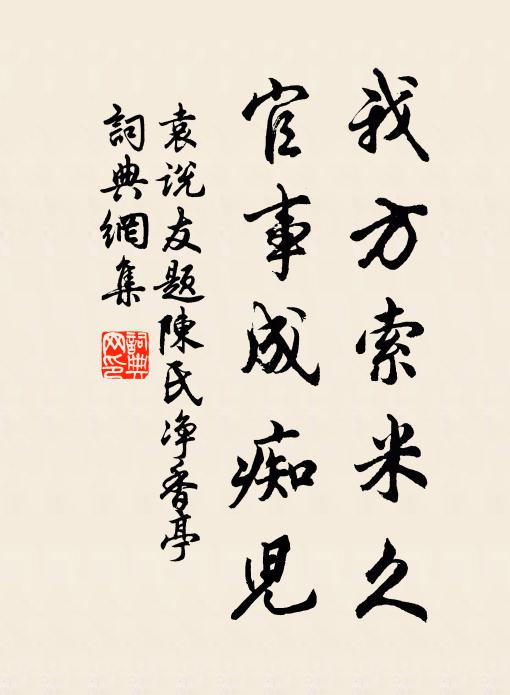 我方索米久
官事成痴兒
袁说友题陳民净香亭
詞典網集
詞典網印